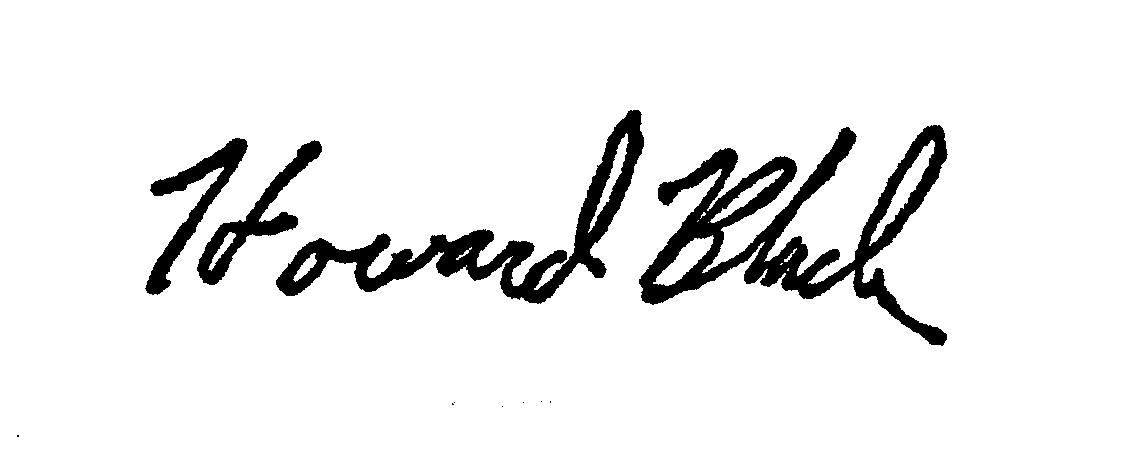 Howard Black